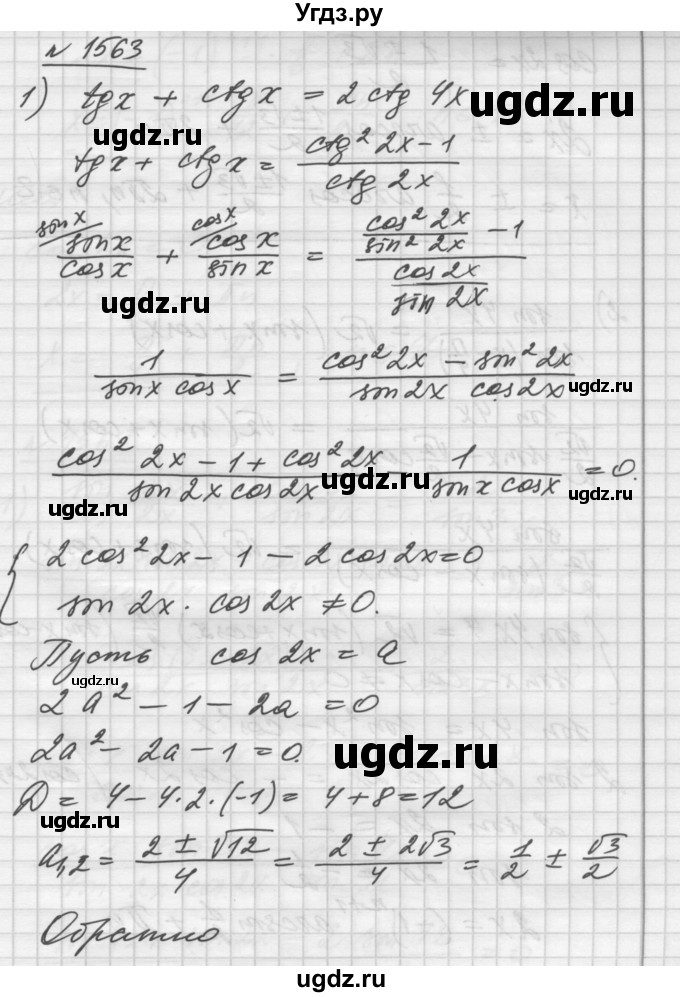 Угдз.ру
№ 1563
1) tg x + ctg x = 2 ctg 4x
ugdz.ru ugdz.ru
tg x + ctg x = (ctg² 2x - 1) / (ctg 2x)
sin x / sin x / cos x + cos x / cos x / sin x = (cos² 2x / sin² 2x - 1) / (cos 2x / sin 2x)
ugdz.ru
1 / (sin x cos x) = (cos² 2x - sin² 2x) / (sin 2x cos 2x)
ugdz.ru
(cos² 2x - 1 + cos² 2x) / (sin 2x cos 2x) - 1 / (sin x cos x) = 0.
ugdz.ru ugdz.ru ugdz.ru
{ 2 cos² 2x - 1 - 2 cos 2x = 0
sin 2x · cos 2x ≠ 0.
Пусть cos 2x = a
ugdz.ru
2a² - 1 - 2a = 0
2a² - 2a - 1 = 0.
ugdz.ru
Д = 4 - 4·2·(-1) = 4 + 8 = 12
ugdz.ru
a₁,₂ = (2 ± √12) / 4 = (2 ± 2√3) / 4 = 1/2 ± √3/2
Обратно
ugdz.ru ugdz.ru
ugdz.ru